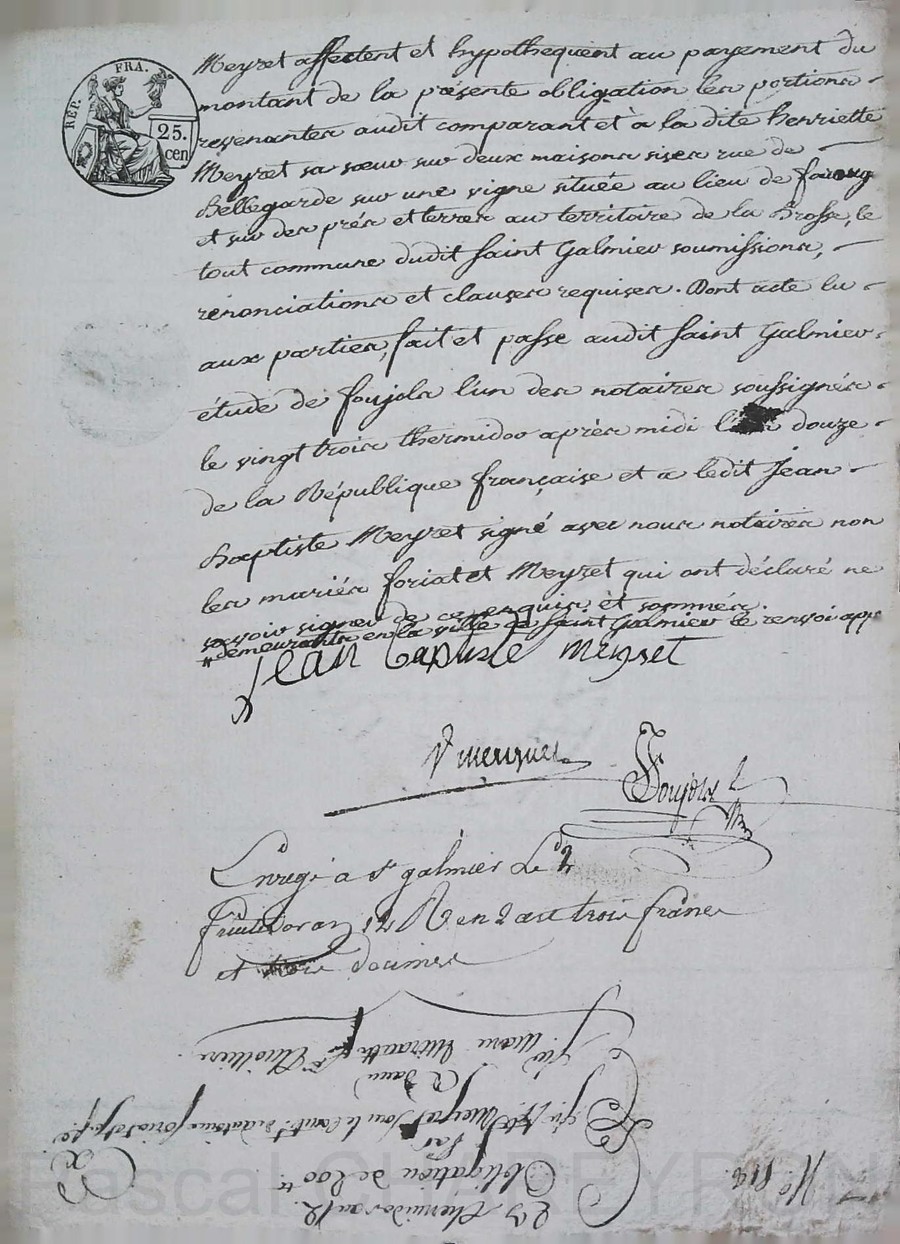 RÉP. FRA.
25.
cen
Meyret affectent et hypothequent au payement du
montant de la présente obligation les portions
revenantes audit comparant et à la dite henriette
Meyret sa sœur sur deux maisons sises rue de
Bellegarde sur une vigne située au lieu de
et sur des prés et terres au territoire de la Brosse, le
tout commune dudit Saint Galmier soumissions,
renonciations et clauses requises. Dont acte lu
aux parties, fait et passé audit Saint Galmier
étude de Foujols l'un des notaires soussignés
le vingt trois thermidor après midi l'an douze
de la République française et a ledit Jean
Baptiste Meyret signé avec nous notaires non
les mariés foriat et Meyret qui ont déclaré ne
savoir signer de ce enquis et sommés.
demeurants en la ville de Saint Galmier le renvoi app
Jean baptiste meyret
Foujols
Enregé a St galmier Le
fructidor an 12 R en 2 art trois francs
et trois decimes
23 thermidor an 12
Obligation de
Par
Meyret
A Dame
Marie
N°
Pascal CHABEYRON